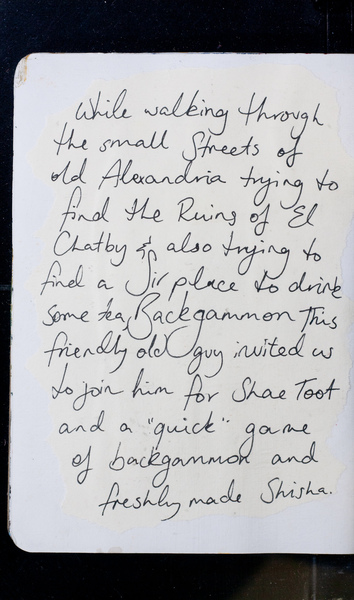 While walking through
the small Streets of
old Alexandria trying to
find the Ruins of El
Chatby & also trying to
find a place to drink
some tea, Backgammon This
friendly old guy invited us
to join him for Shae Toot
and a "quick" game
of backgammon and
freshly made Shisha.